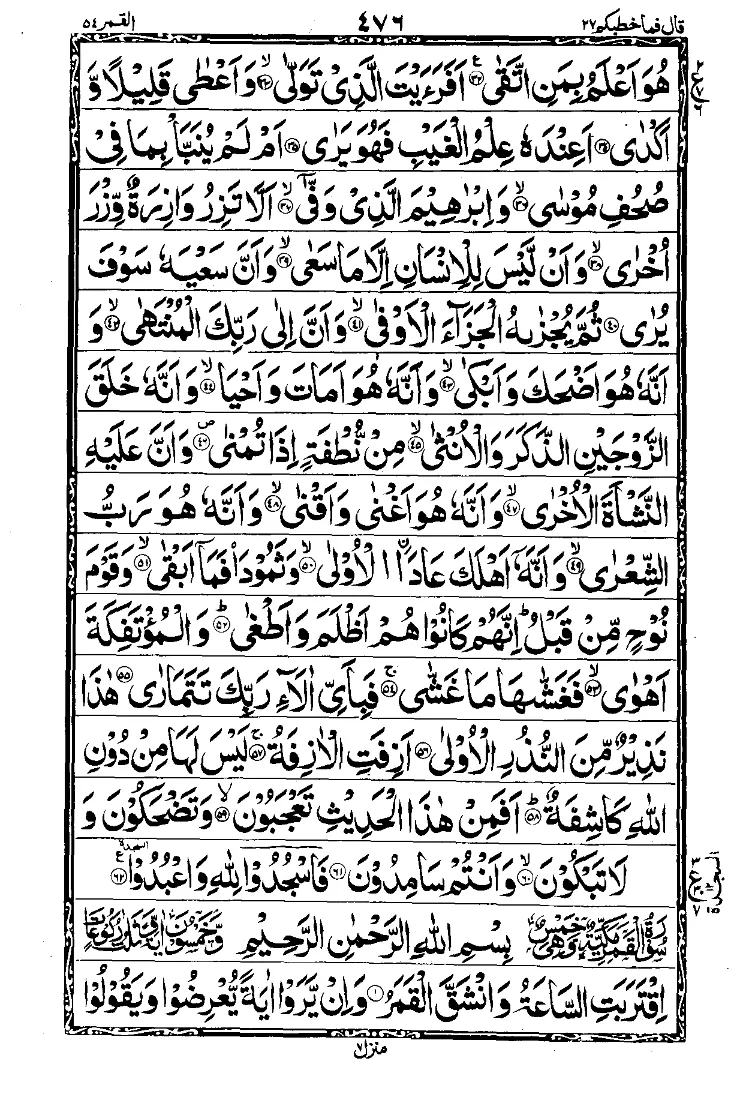 قال فما خطبكم ٢٧ ٤٧٦ القمر ٥٤
هُوَ اَعْلَمُ بِمَنِ اتَّقٰى ﴿٣٢﴾ اَفَرَءَيْتَ الَّذِىْ تَوَلّٰى ﴿٣٣﴾ وَاَعْطٰى قَلِيْلًا وَّ
اَكْدٰى ﴿٣٤﴾ اَعِنْدَهٗ عِلْمُ الْغَيْبِ فَهُوَ يَرٰى ﴿٣٥﴾ اَمْ لَمْ يُنَبَّاْ بِمَا فِىْ
صُحُفِ مُوْسٰى ﴿٣٦﴾ وَاِبْرٰهِيْمَ الَّذِىْ وَفّٰىٓ ﴿٣٧﴾ اَلَّا تَزِرُ وَازِرَةٌ وِّزْرَ
اُخْرٰى ﴿٣٨﴾ وَاَنْ لَّيْسَ لِلْاِنْسَانِ اِلَّا مَا سَعٰى ﴿٣٩﴾ وَاَنَّ سَعْيَهٗ سَوْفَ
يُرٰى ﴿٤٠﴾ ثُمَّ يُجْزٰىهُ الْجَزَآءَ الْاَوْفٰى ﴿٤١﴾ وَاَنَّ اِلٰى رَبِّكَ الْمُنْتَهٰى ﴿٤٢﴾ وَ
اَنَّهٗ هُوَ اَضْحَكَ وَاَبْكٰى ﴿٤٣﴾ وَاَنَّهٗ هُوَ اَمَاتَ وَاَحْيَا ﴿٤٤﴾ وَاَنَّهٗ خَلَقَ
الزَّوْجَيْنِ الذَّكَرَ وَالْاُنْثٰى ﴿٤٥﴾ مِنْ نُّطْفَةٍ اِذَا تُمْنٰى ﴿٤٦﴾ وَاَنَّ عَلَيْهِ
النَّشْاَةَ الْاُخْرٰى ﴿٤٧﴾ وَاَنَّهٗ هُوَ اَغْنٰى وَاَقْنٰى ﴿٤٨﴾ وَاَنَّهٗ هُوَ رَبُّ
الشِّعْرٰى ﴿٤٩﴾ وَاَنَّهٗٓ اَهْلَكَ عَادَا۟ اۨلْاُوْلٰى ﴿٥٠﴾ وَثَمُوْدَا۟ فَمَآ اَبْقٰى ﴿٥١﴾ وَقَوْمَ
نُوْحٍ مِّنْ قَبْلُ ؕ اِنَّهُمْ كَانُوْا هُمْ اَظْلَمَ وَاَطْغٰى ﴿٥٢﴾ وَالْمُؤْتَفِكَةَ
اَهْوٰى ﴿٥٣﴾ فَغَشّٰىهَا مَا غَشّٰى ﴿٥٤﴾ فَبِاَىِّ اٰلَآءِ رَبِّكَ تَتَمَارٰى ﴿٥٥﴾ هٰذَا
نَذِيْرٌ مِّنَ النُّذُرِ الْاُوْلٰى ﴿٥٦﴾ اَزِفَتِ الْاٰزِفَةُ ﴿٥٧﴾ لَيْسَ لَهَا مِنْ دُوْنِ
اللّٰهِ كَاشِفَةٌ ﴿٥٨﴾ اَفَمِنْ هٰذَا الْحَدِيْثِ تَعْجَبُوْنَ ﴿٥٩﴾ وَتَضْحَكُوْنَ وَ
لَا تَبْكُوْنَ ﴿٦٠﴾ وَاَنْتُمْ سَامِدُوْنَ ﴿٦١﴾ فَاسْجُدُوْا لِلّٰهِ وَاعْبُدُوْا ﴿٦٢﴾ السجدة
سُوْرَةُ الْقَمَرِ مَكِّيَّةٌ وَّهِىَ خَمْسٌ بِسْمِ اللّٰهِ الرَّحْمٰنِ الرَّحِيْمِ وَّخَمْسُوْنَ اٰيَةً وَّثَلٰثُ رُكُوْعَاتٍ
اِقْتَرَبَتِ السَّاعَةُ وَانْشَقَّ الْقَمَرُ ﴿١﴾ وَاِنْ يَّرَوْا اٰيَةً يُّعْرِضُوْا وَيَقُوْلُوْا
منزل ٧